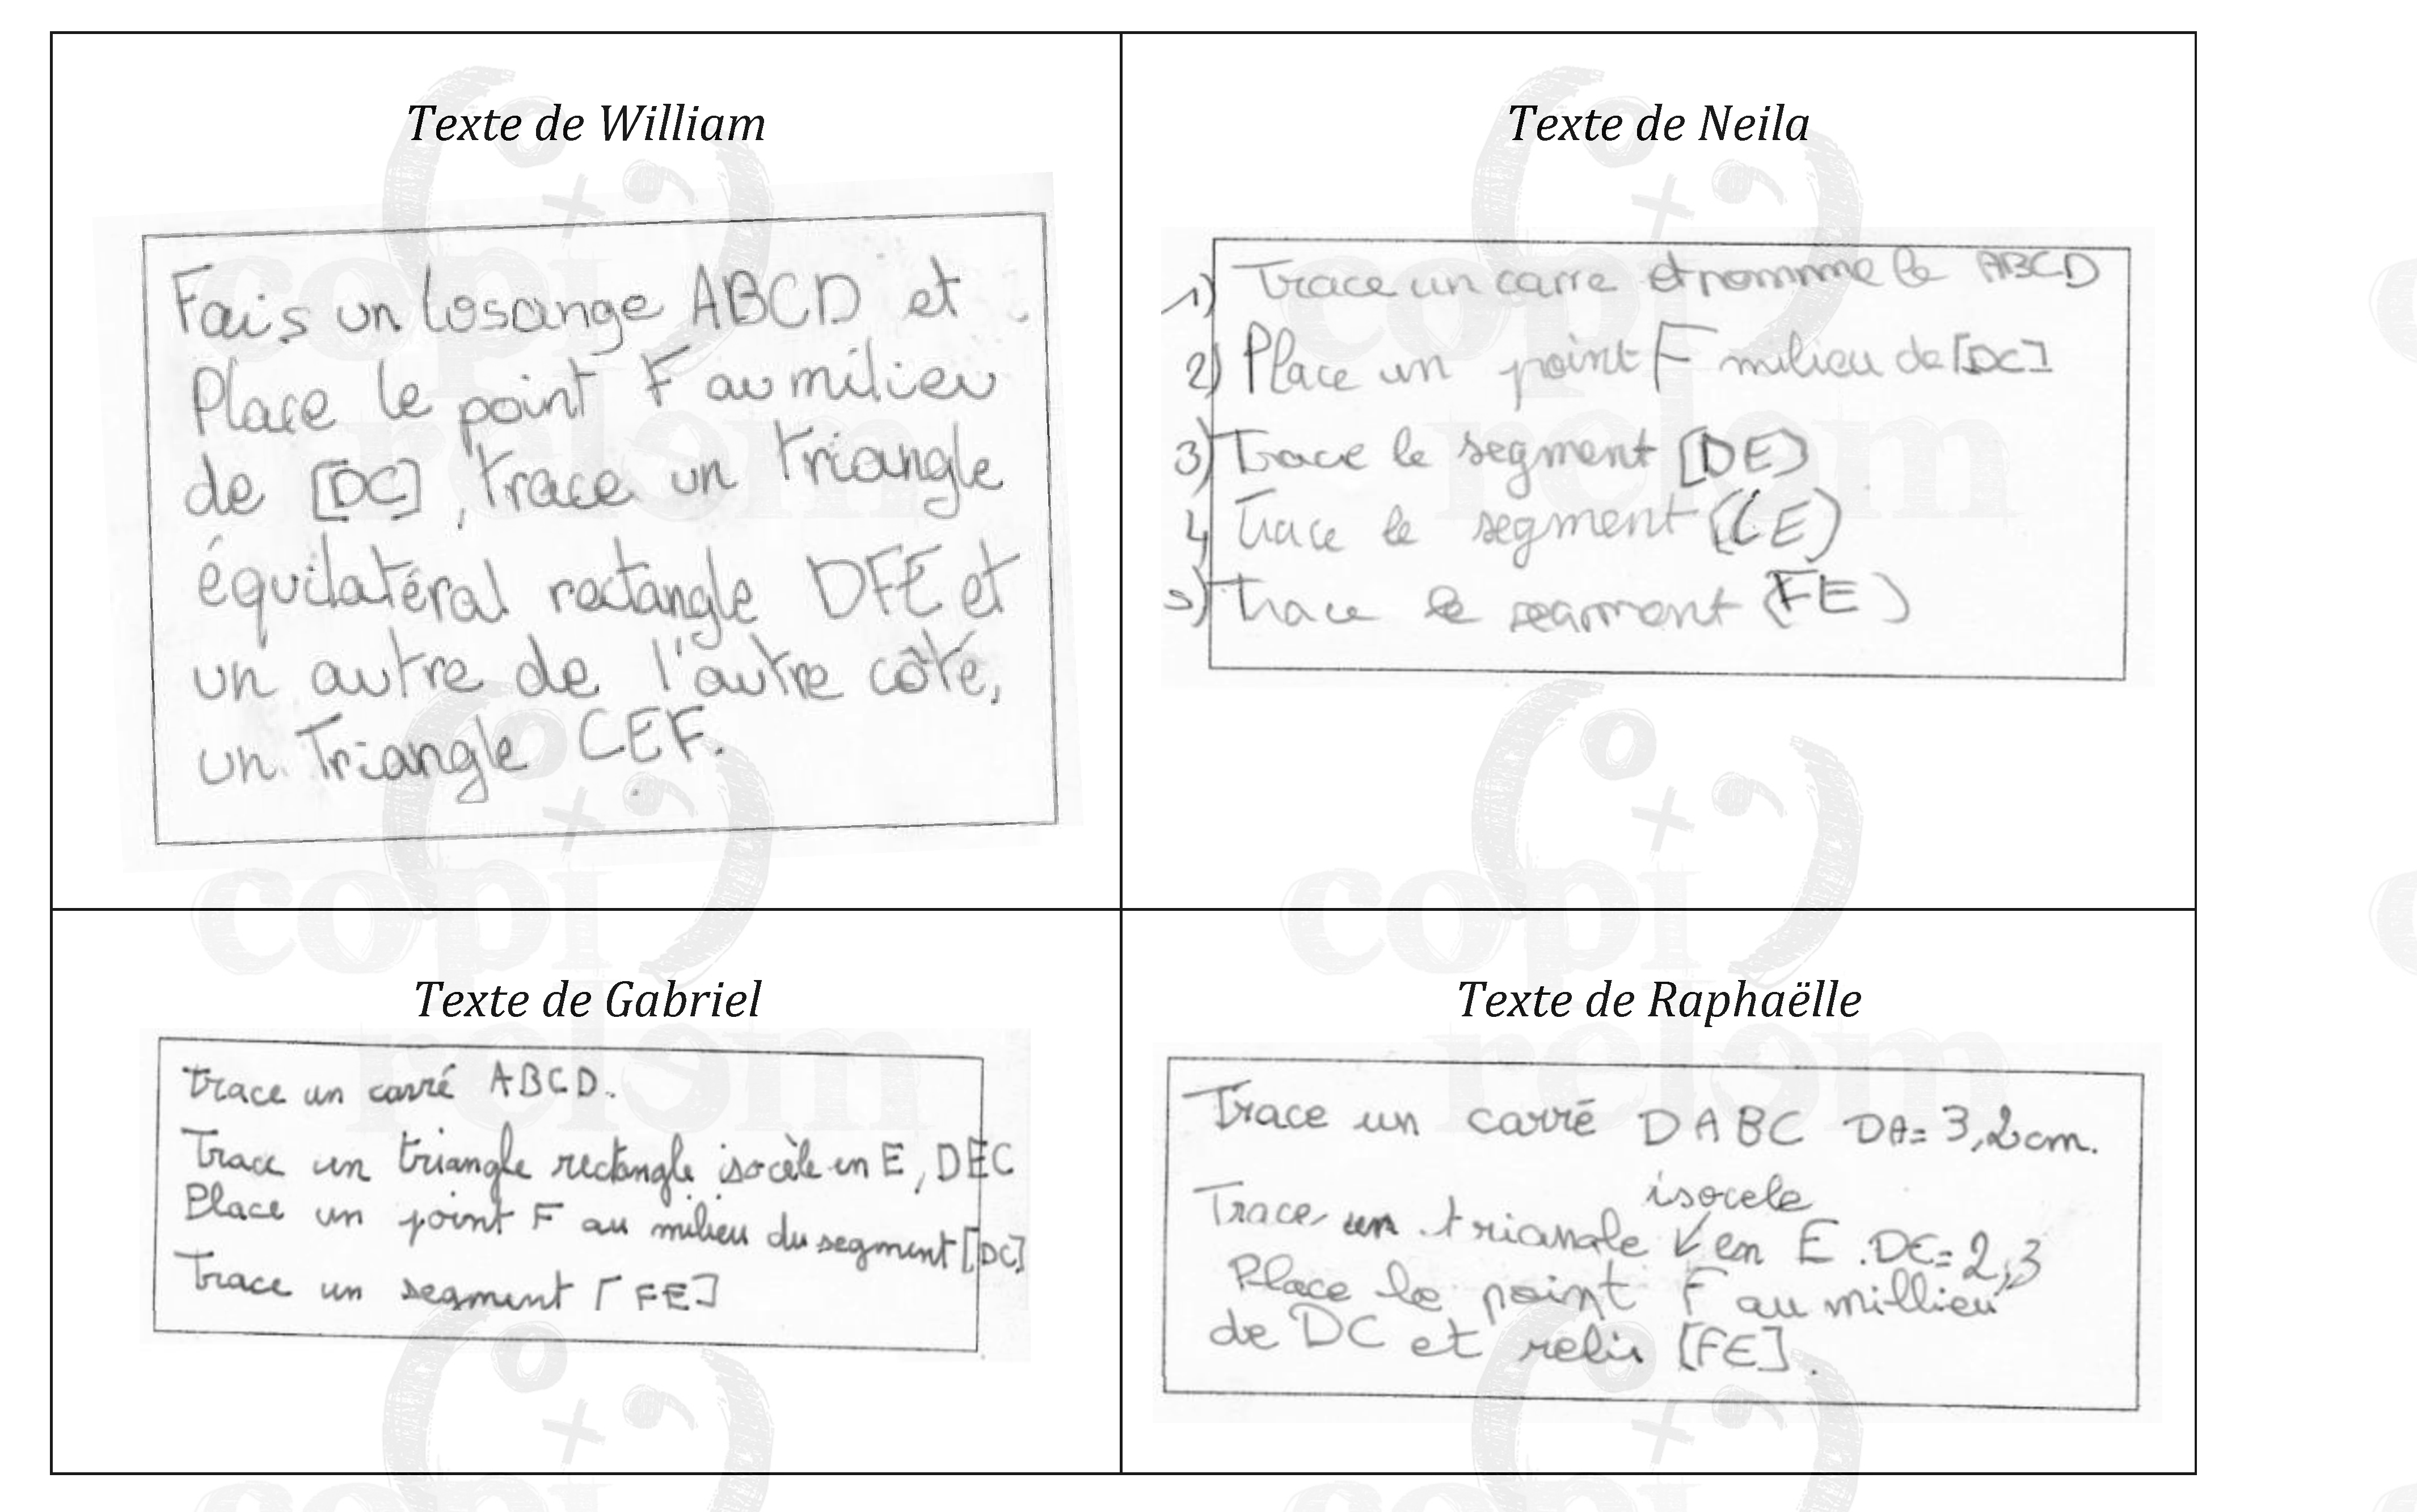 Texte de William
Fais un losange ABCD et
Place le point F au milieu
de [DC], trace un triangle
équilatéral rectangle DFE et
un autre de l'autre côté,
un Triangle CEF.
Texte de Neila
1) Trace un carre et nomme le ABCD
2) Place un point F milieu de [DC]
3) Trace le segment [DE)
4 Trace le segment (CE)
5) Trace le segment (FE)
Texte de Gabriel
Trace un carré ABCD.
Trace un triangle rectangle isocèle en E, DEC
Place un point F au milieu du segment [DC]
Trace un segment [FE]
Texte de Raphaëlle
Trace un carré DABC DA= 3,2cm.
isocele
Trace un triangle ↙ en E. DE= 2,3
Place le point F au millieu
de DC et relis [FE].
copirelem